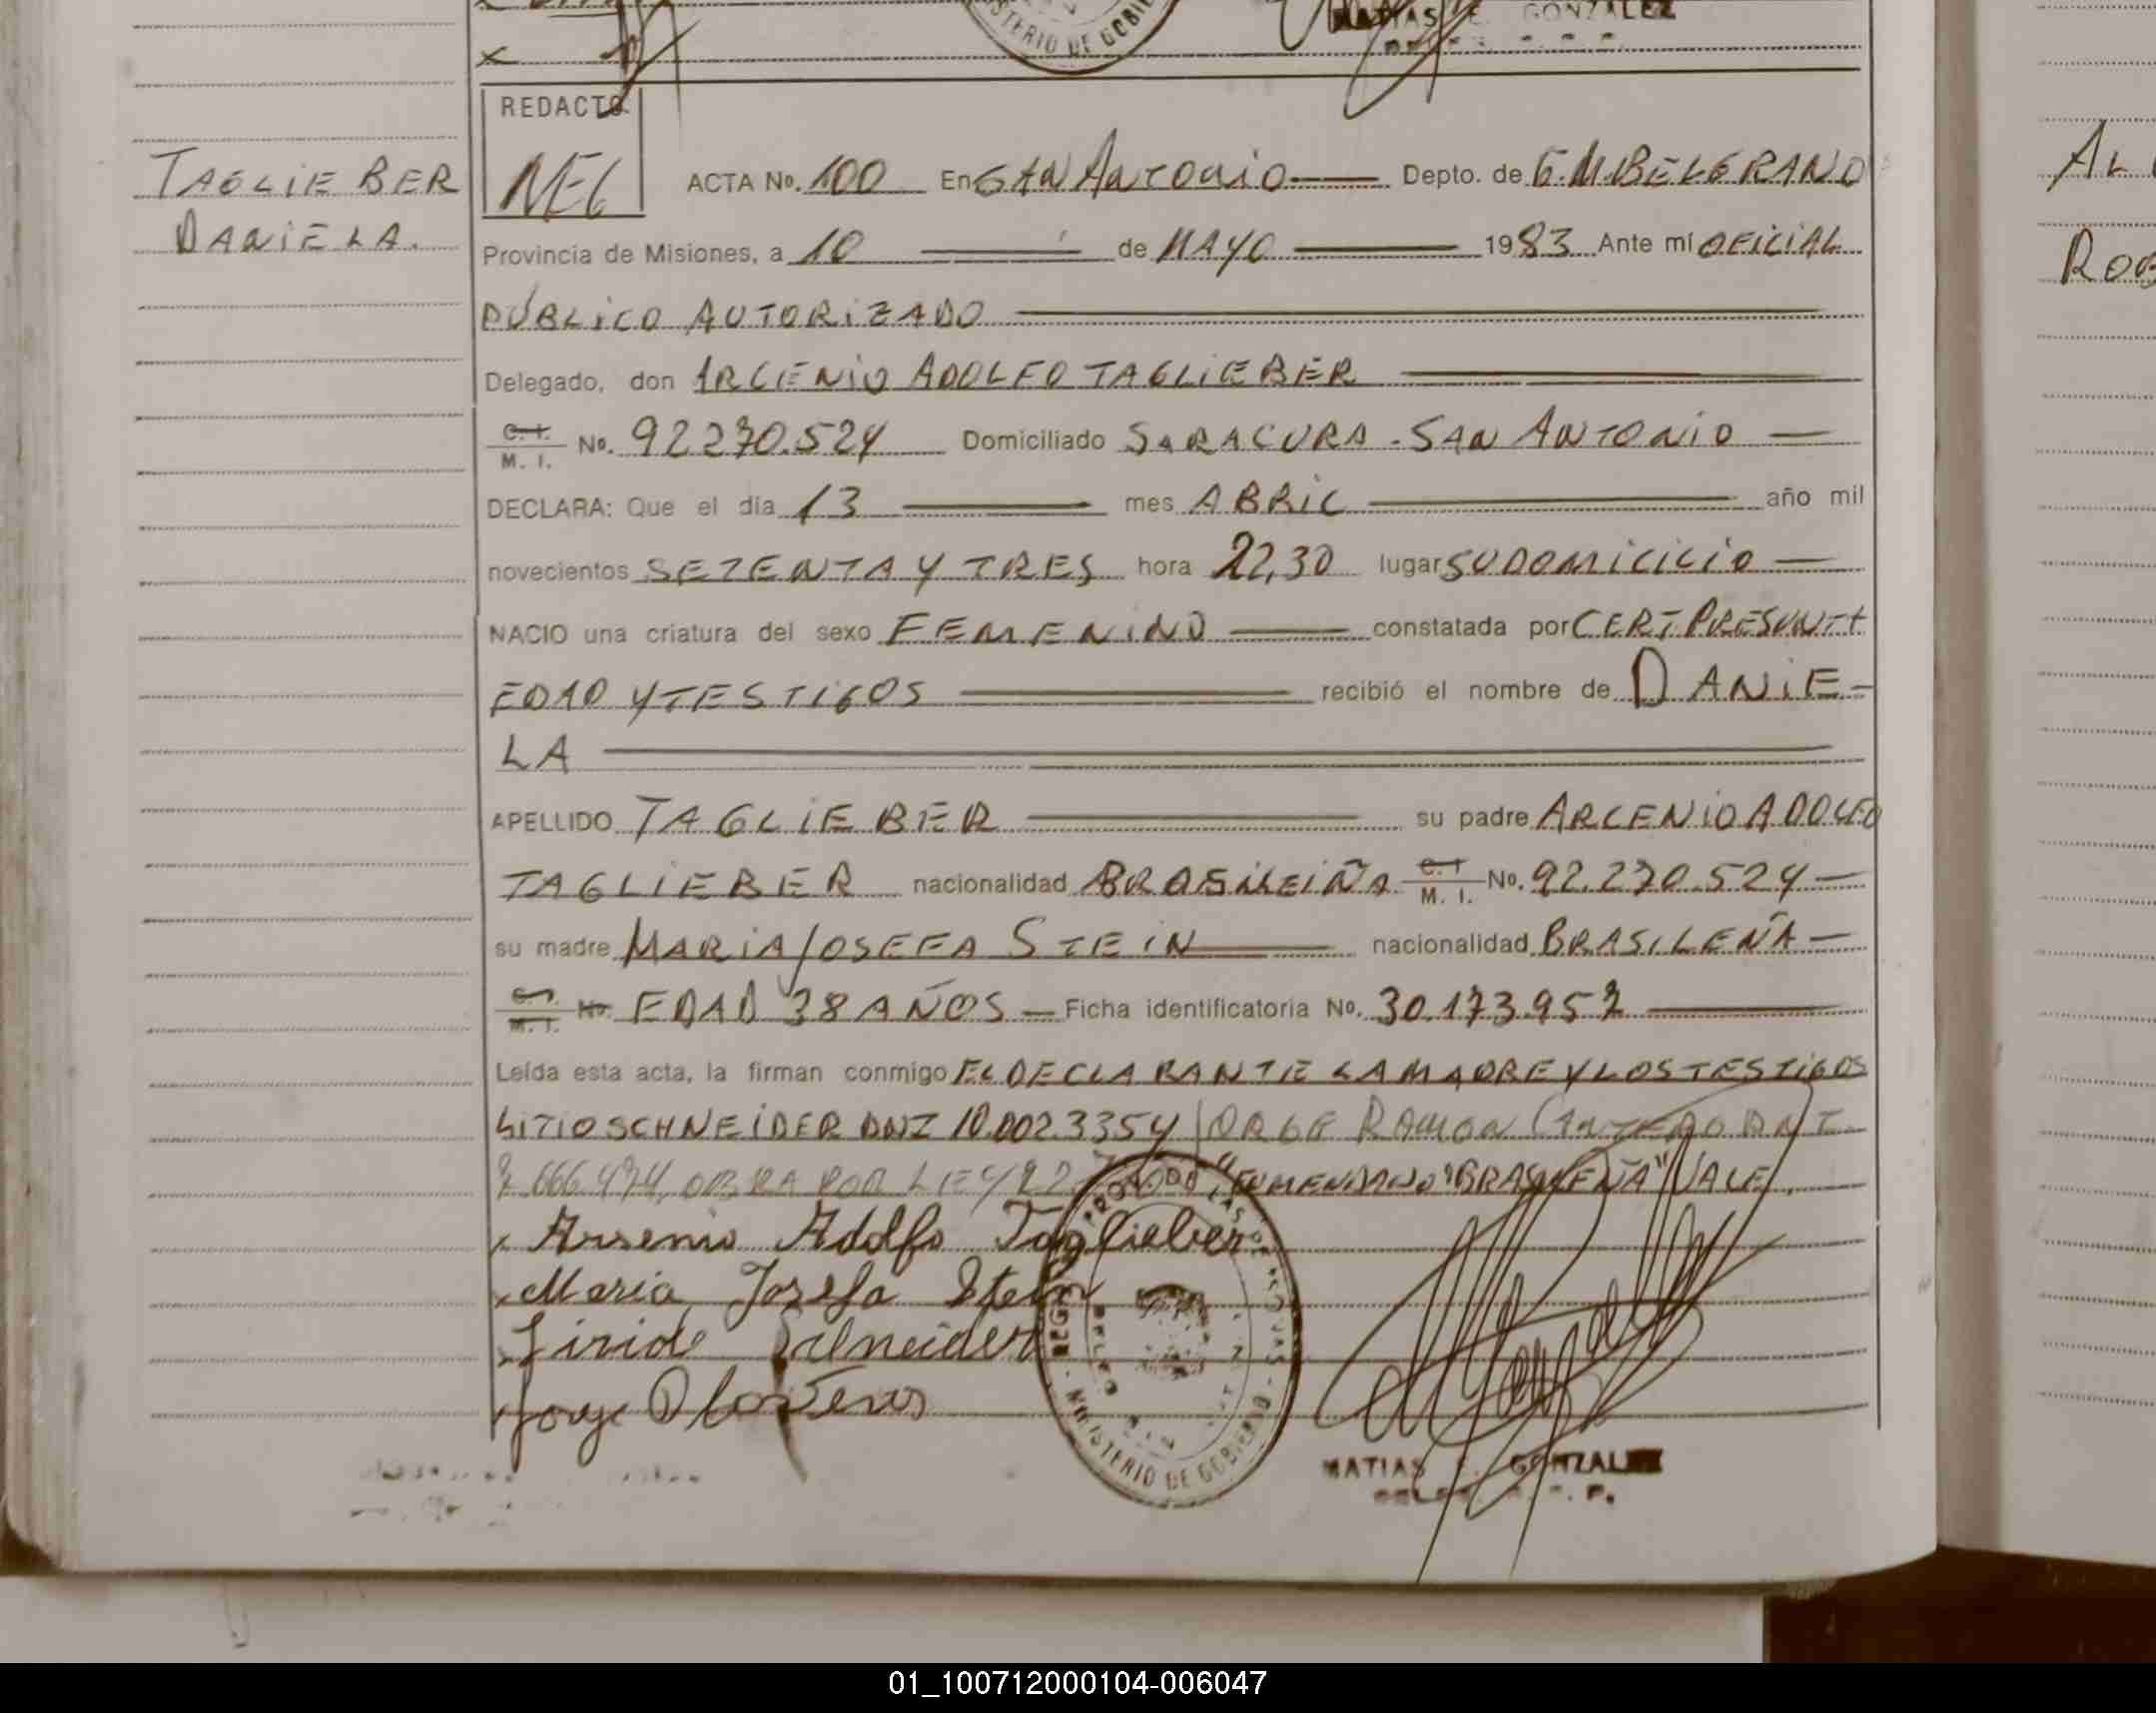 MATIAS E. GONZALEZ
MINISTERIO DE GOBIERNO
REDACTO
TAGLIEBER
DANIELA.
ACTA No. 100 En SAN ANTONIO Depto. de G.M.BELGRANO
Provincia de Misiones, a 10 de MAYO 1983 Ante mí OFICIAL
PÚBLICO AUTORIZADO
Delegado, don ARCENIO ADOLFO TAGLIEBER
C. I. / M. I. No. 92.270.524 Domiciliado SARACURA - SAN ANTONIO
DECLARA: Que el día 13 mes ABRIL año mil
novecientos SETENTA Y TRES hora 22,30 lugar SU DOMICILIO
NACIO una criatura del sexo FEMENINO constatada por CERT. PRESUNTA
EDAD Y TESTIGOS recibió el nombre de DANIE-
LA
APELLIDO TAGLIEBER su padre ARCENIO ADOLFO
TAGLIEBER nacionalidad BRASILEÑA C. I. / M. I. No. 92.270.524
su madre MARIA JOSEFA STEIN nacionalidad BRASILEÑA
C. I. / M. I. No. EDAD 38 AÑOS Ficha identificatoria No. 30.173.957
Leída esta acta, la firman conmigo EL DECLARANTE LA MADRE Y LOS TESTIGOS
SCHNEIDER DNI 10.002.3354 JORGE RAMON DNI.
7.666.474, OBRA POR LEY 22 "ENMENDADO "BRASILEÑA" VALE.
x Arsenio Adolfo Taglieber
x Maria Josefa Stein
Schneider
Jorge
MINISTERIO DE GOBIERNO
MATIAS E. GONZALEZ
AL
ROB
01_100712000104-006047